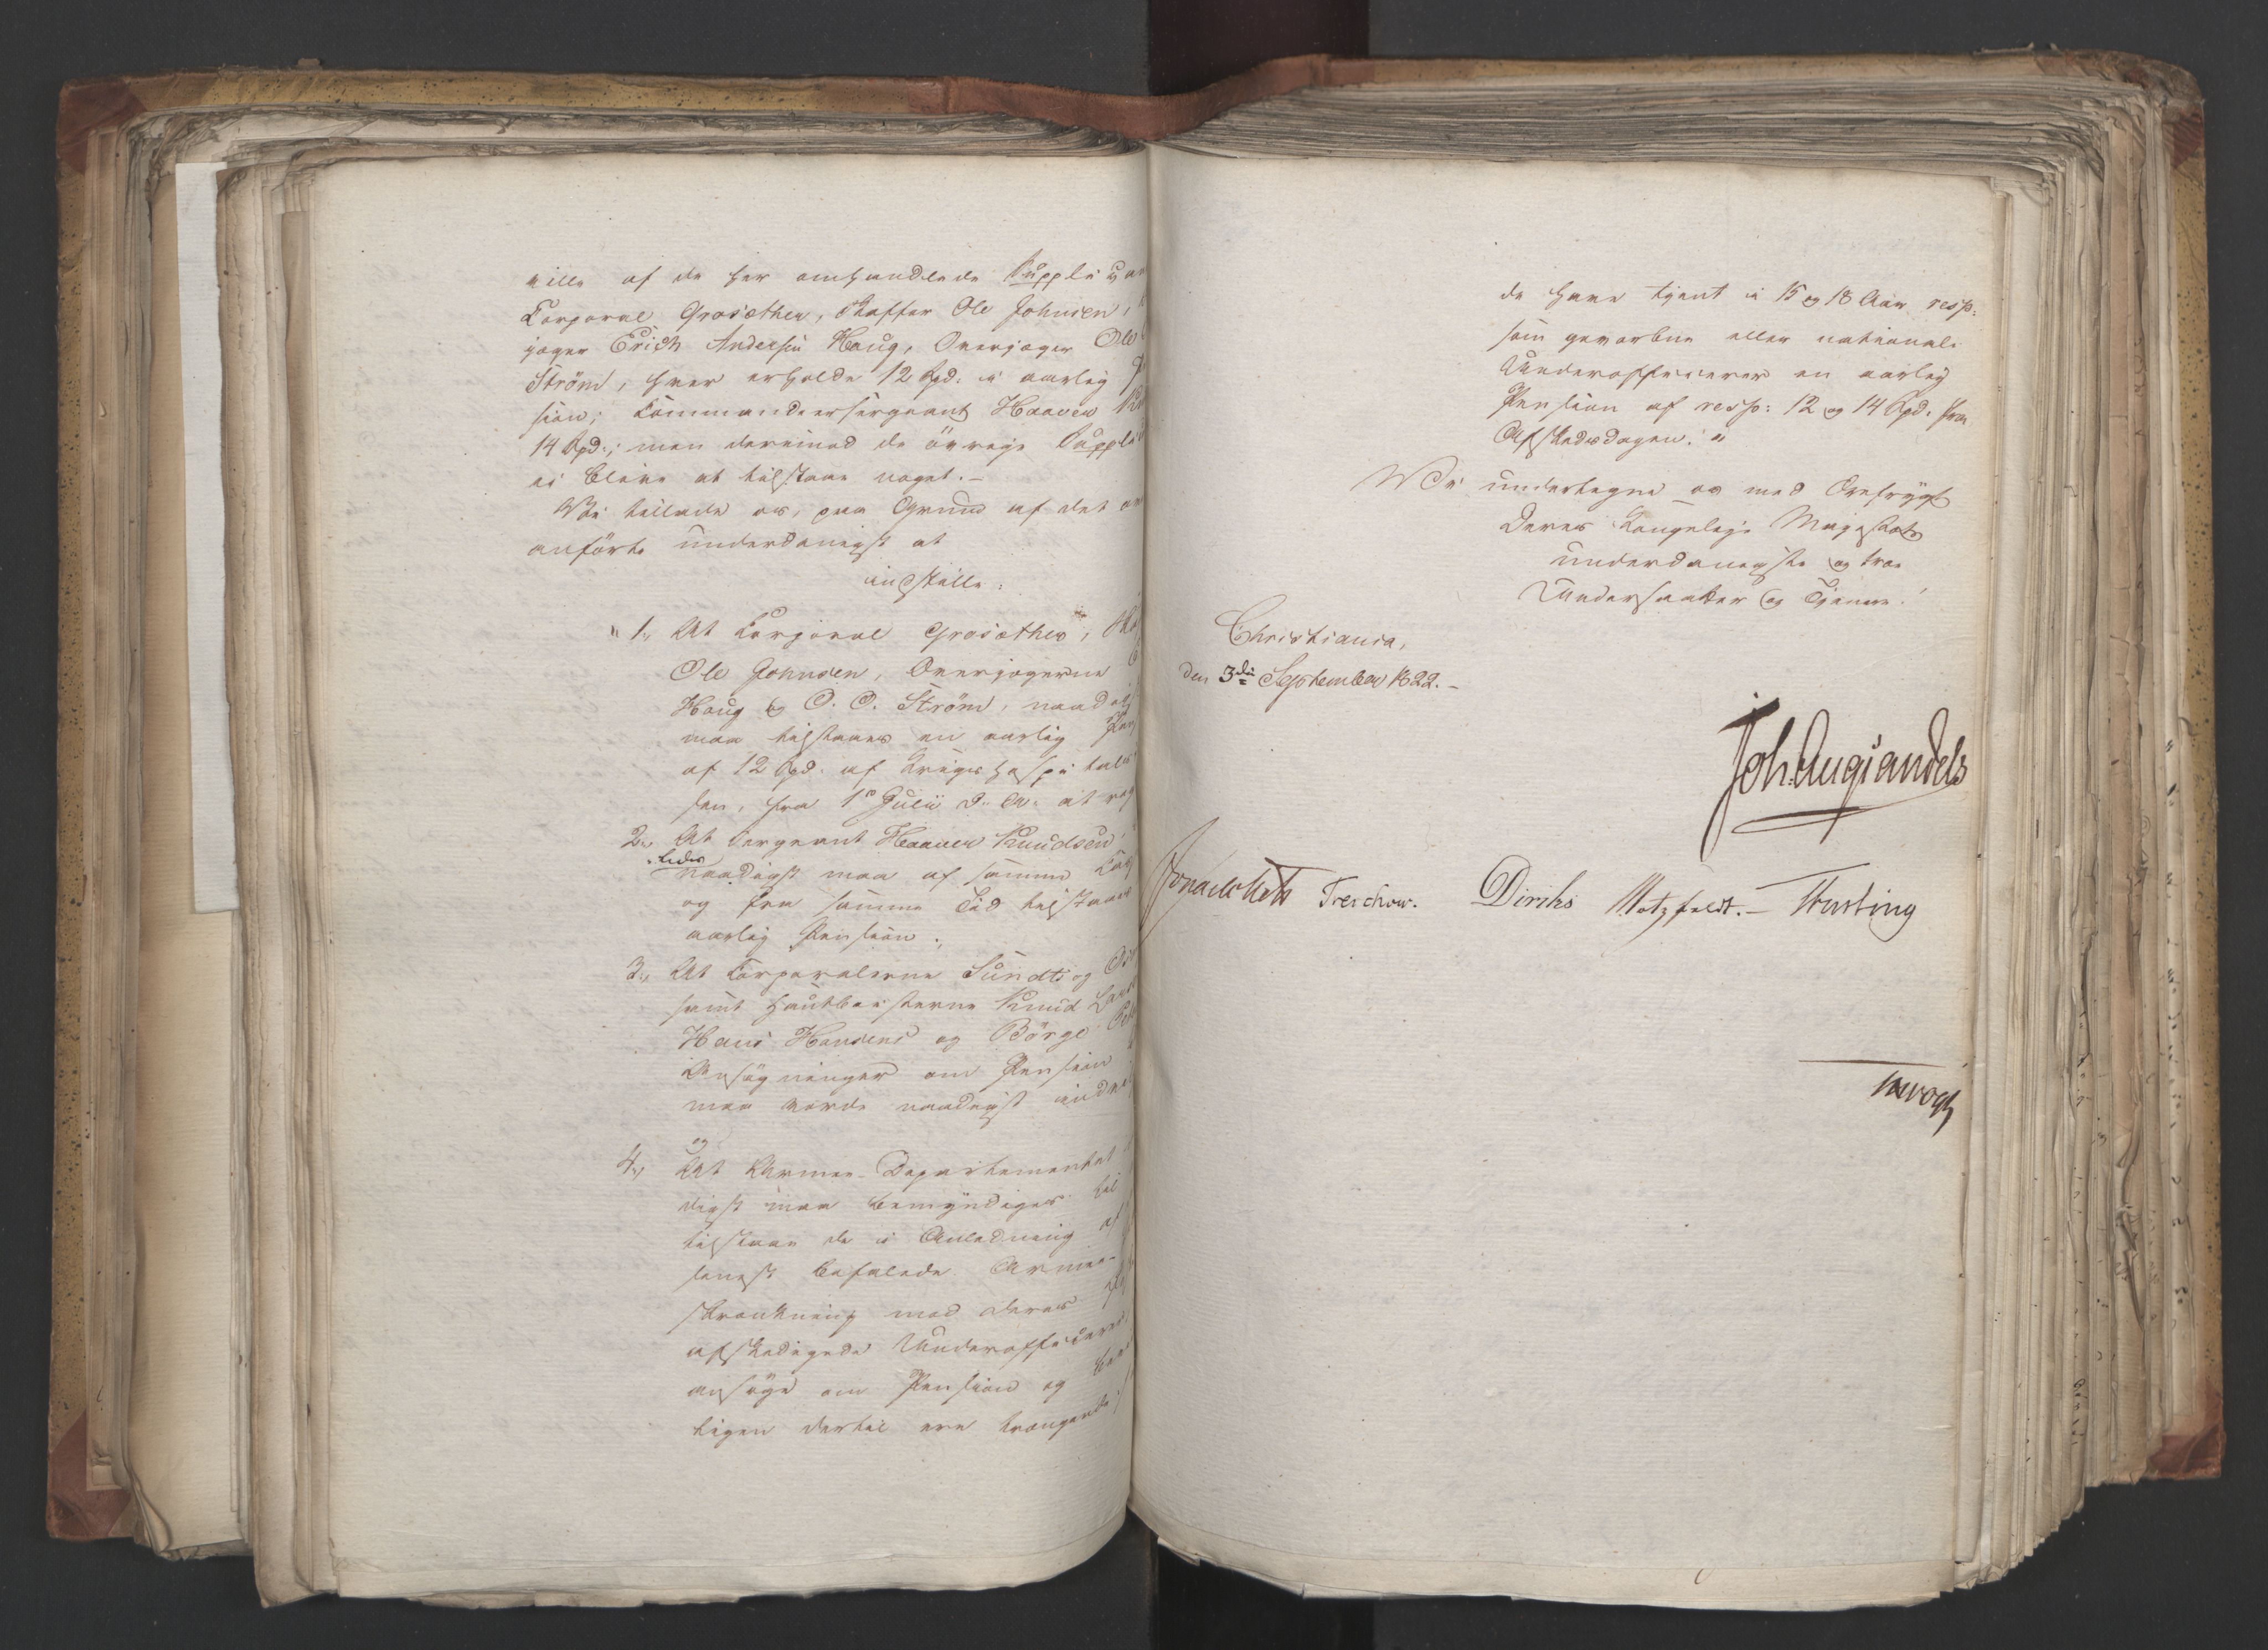 ville af de her omhandlede Suppli
Corporal Grosæther, Staffer Ole Johnsen,
jæger Erich Andersen Haug, Overjæger Ole
Ström, hver erholde 12 Spd. i aarlig
sion; Commandeersergeant Haaven
14 Spd.; men derimod de övrige Suppli
ei blive at tilstaae noget. –
Vi tillade os, paa Grund af det
anförte underdanigst at
indstille:
"1., At Corporal Grosæther,
Ole Johnsen, Overjægerne
Haug og O. O. Ström, naadigst
maa tilstaaes en aarlig Pen
af 12 Spd. af Krigshospitals
sen, fra 1e Julii d. A. at reg
2., At Sergeant Haaven Knudsen
naadigst maa af samme Cas
og fra samme Tid tilstaaes
aarlig Pension.;
3., At Corporalerne Sundt og
samt Hautboisterne Knud
Hans Hansens og Börge
Ansögninger om Pension
maa vorde naadigst
og
4., At Armee-Departementet
digst maa bemyndiges til
tilstaae de i Anledning af
senest befalede Armee-
skrænkning med deres
afskedigede Underofficerer,
ansöge om Pension og
ligen dertil ere trængende,
de have tjent i 15 og 18 Aar resp:
som gevorbne eller nationale
Underofficerer en aarlig
Pension af resp: 12 og 14 Spd. fra
Afskedsdagen."
Vi undertegne os med Ærefrygt
Deres Kongelige Majestæts
underdanigste og troe
Undersaatter og Tjenere.
Christiania,
den 3die September 1822. –
Joh. Aug. Sandels
Jonas Collett Treschow. Diriks Motzfeldt. – Fasting
Vogt